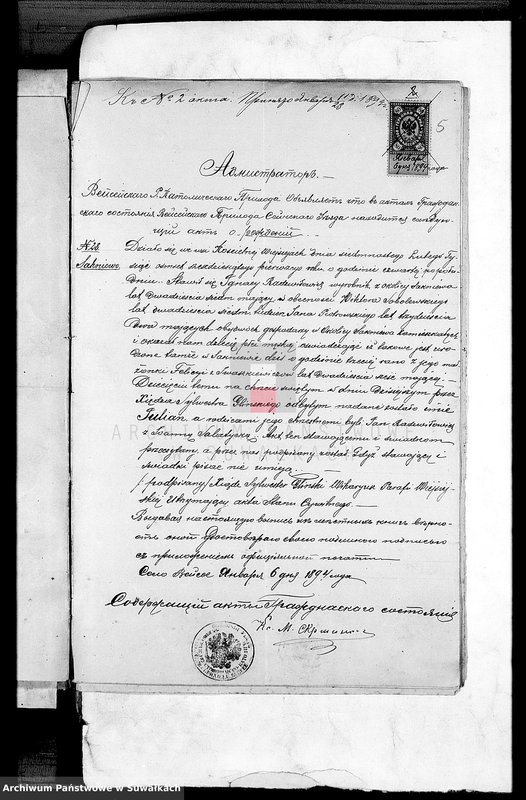 Къ № 2 акта. Принято Января 11/23 д. 1894 г.
5
Января
6 дня 1894 года
Администраторъ.—
Вейсейскаго Р. Католическаго Прихода Объявляетъ что въ актахъ Граждан-
скаго состоянія Вейсейскаго Прихода Сейнскаго Уезда находится следую-
щій актъ о рожденіи.
№ 28.
Działo się we wsi Kościelnej Wejsejach dnia siedmnastego Lutego Ty-
siąc ośmset siedmdziesiątego pierwszego roku o godzinie czwartej po połud-
niu. Stawił się Ignacy Radziwiłowicz wyrobnik z okolicy
lat dwadzieścia siedm mający w obecności Wiktora Sobolewskiego
lat dwadzieścia siedm tudzież Jana Piotrowskiego lat trzydzieścia
dwa mających obydwóch gospodarzy w Okolicy zamieszkałych
i okazał nam dziecię płci męskiej oświadczając iż takowe jest uro-
dzone tamże w dziś o godzinie trzeciej rano z jego mał-
żonki Felicyi z lat dwadzieścia sześć mającej.—
Dziecięciu temu na chrzcie świętym w dniu dzisiejszym przez
Księdza Sylwestra Glińskiego odbytym nadane zostało imie
Julian, a rodzicami jego chrzestnemi byli Jan
z Joanną Akt ten stawającemu i świadkom
przeczytany a przez nas podpisany został. Gdyż stawający i
świadki pisać nie umieją.—
/podpisany/ Xiądz Sylwester Gliński Wikaryusz Parafi Wejsej-
skiej Utrzymujący akta Stanu Cywilnego.—
Выдавая настоящую выпись изъ метричныхъ книгъ верно-
сть оной удостоверяю своею подписью
съ приложеніемъ оффиціальной печати
Село Вейсее Января 6 дня 1894 года
Содержащій акты Гражданскаго состоянія
Кс. М.
Archiwum Państwowe w Suwałkach